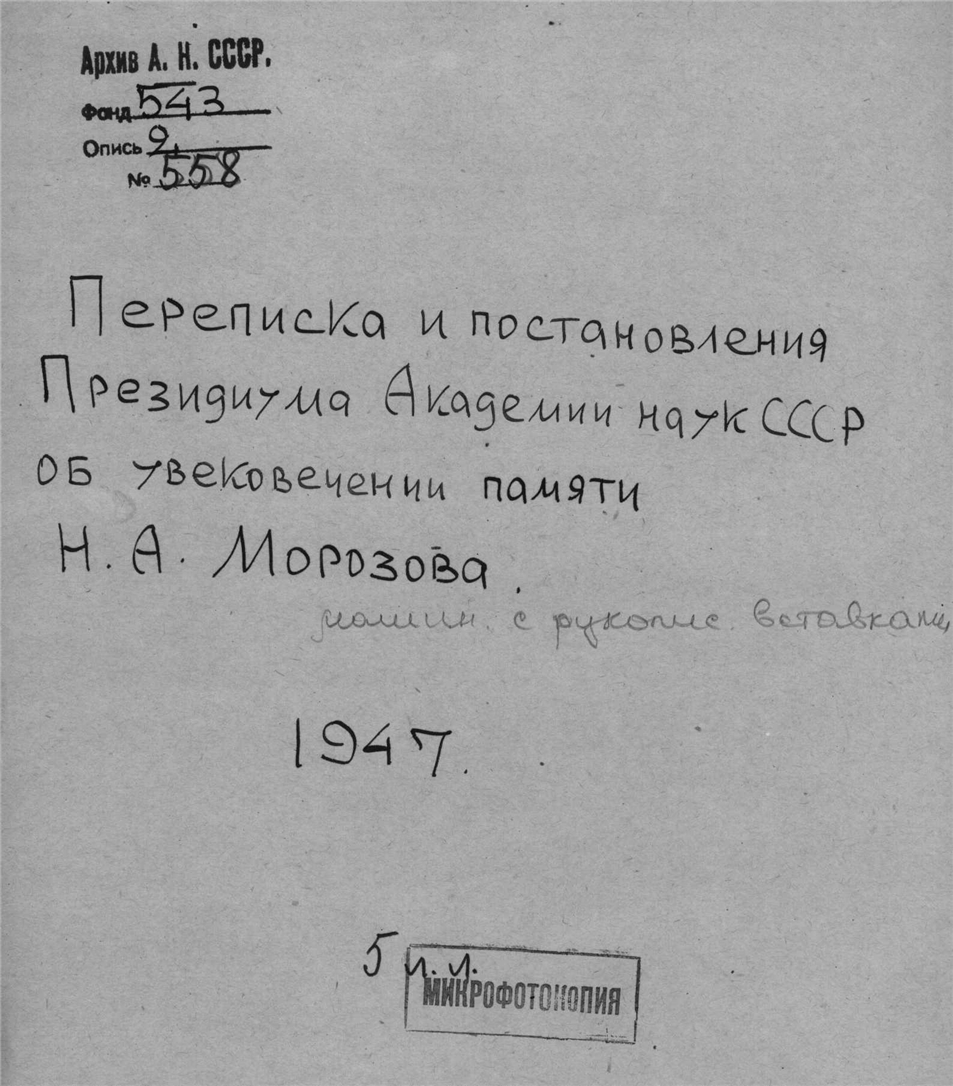 Архив А. Н. СССР.
Фонд 543
Опись 2
№ 558
Переписка и постановления
Президиума Академии наук СССР
об увековечении памяти
Н. А. Морозова.
машин. с рукопис. вставками
1947.
5 л. л.
МИКРОФОТОКОПИЯ